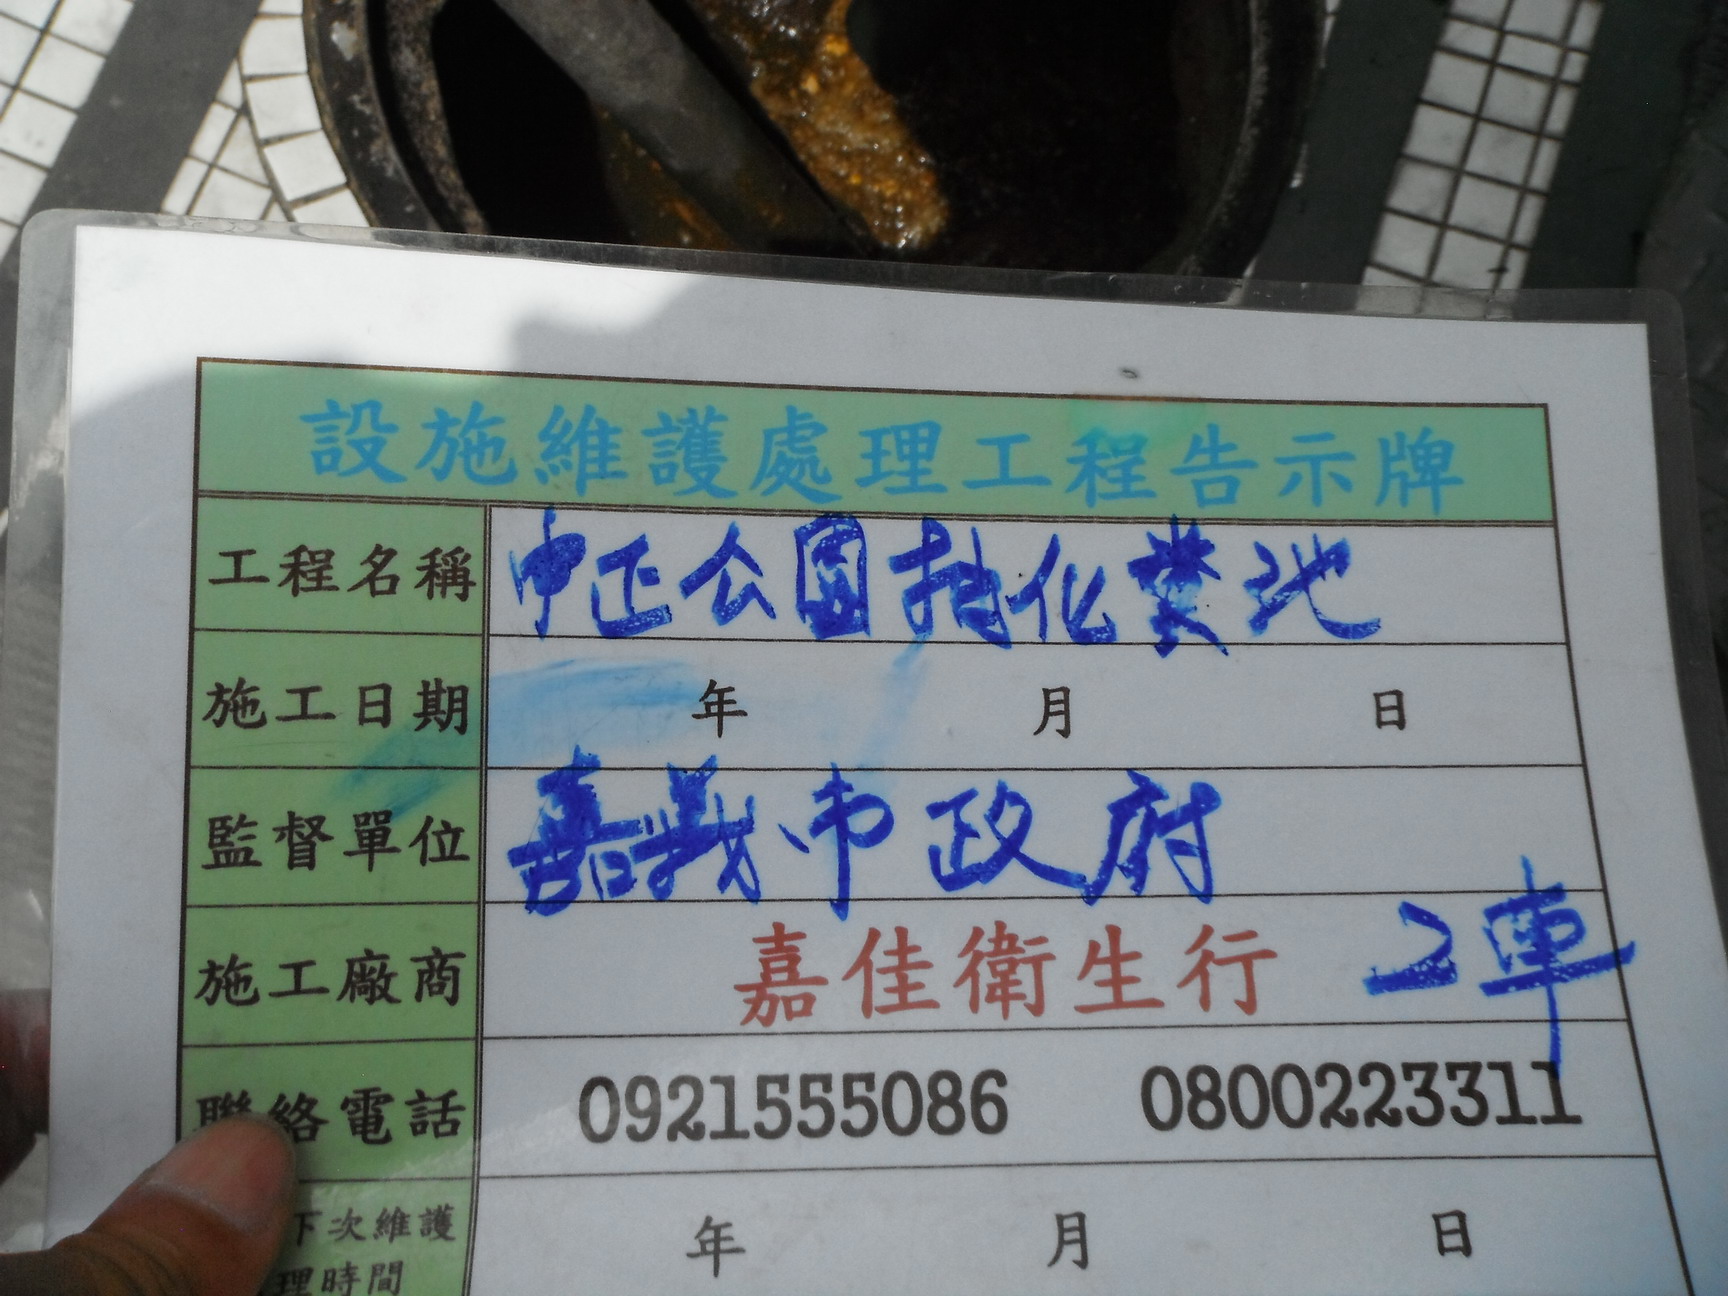 設施維護處理工程告示牌
工程名稱 中正公園抽化糞池
施工日期 年 月 日
監督單位 嘉義市政府
施工廠商 嘉佳衛生行 2車
聯絡電話 0921555086 0800223311
下次維護 年 月 日
理時間